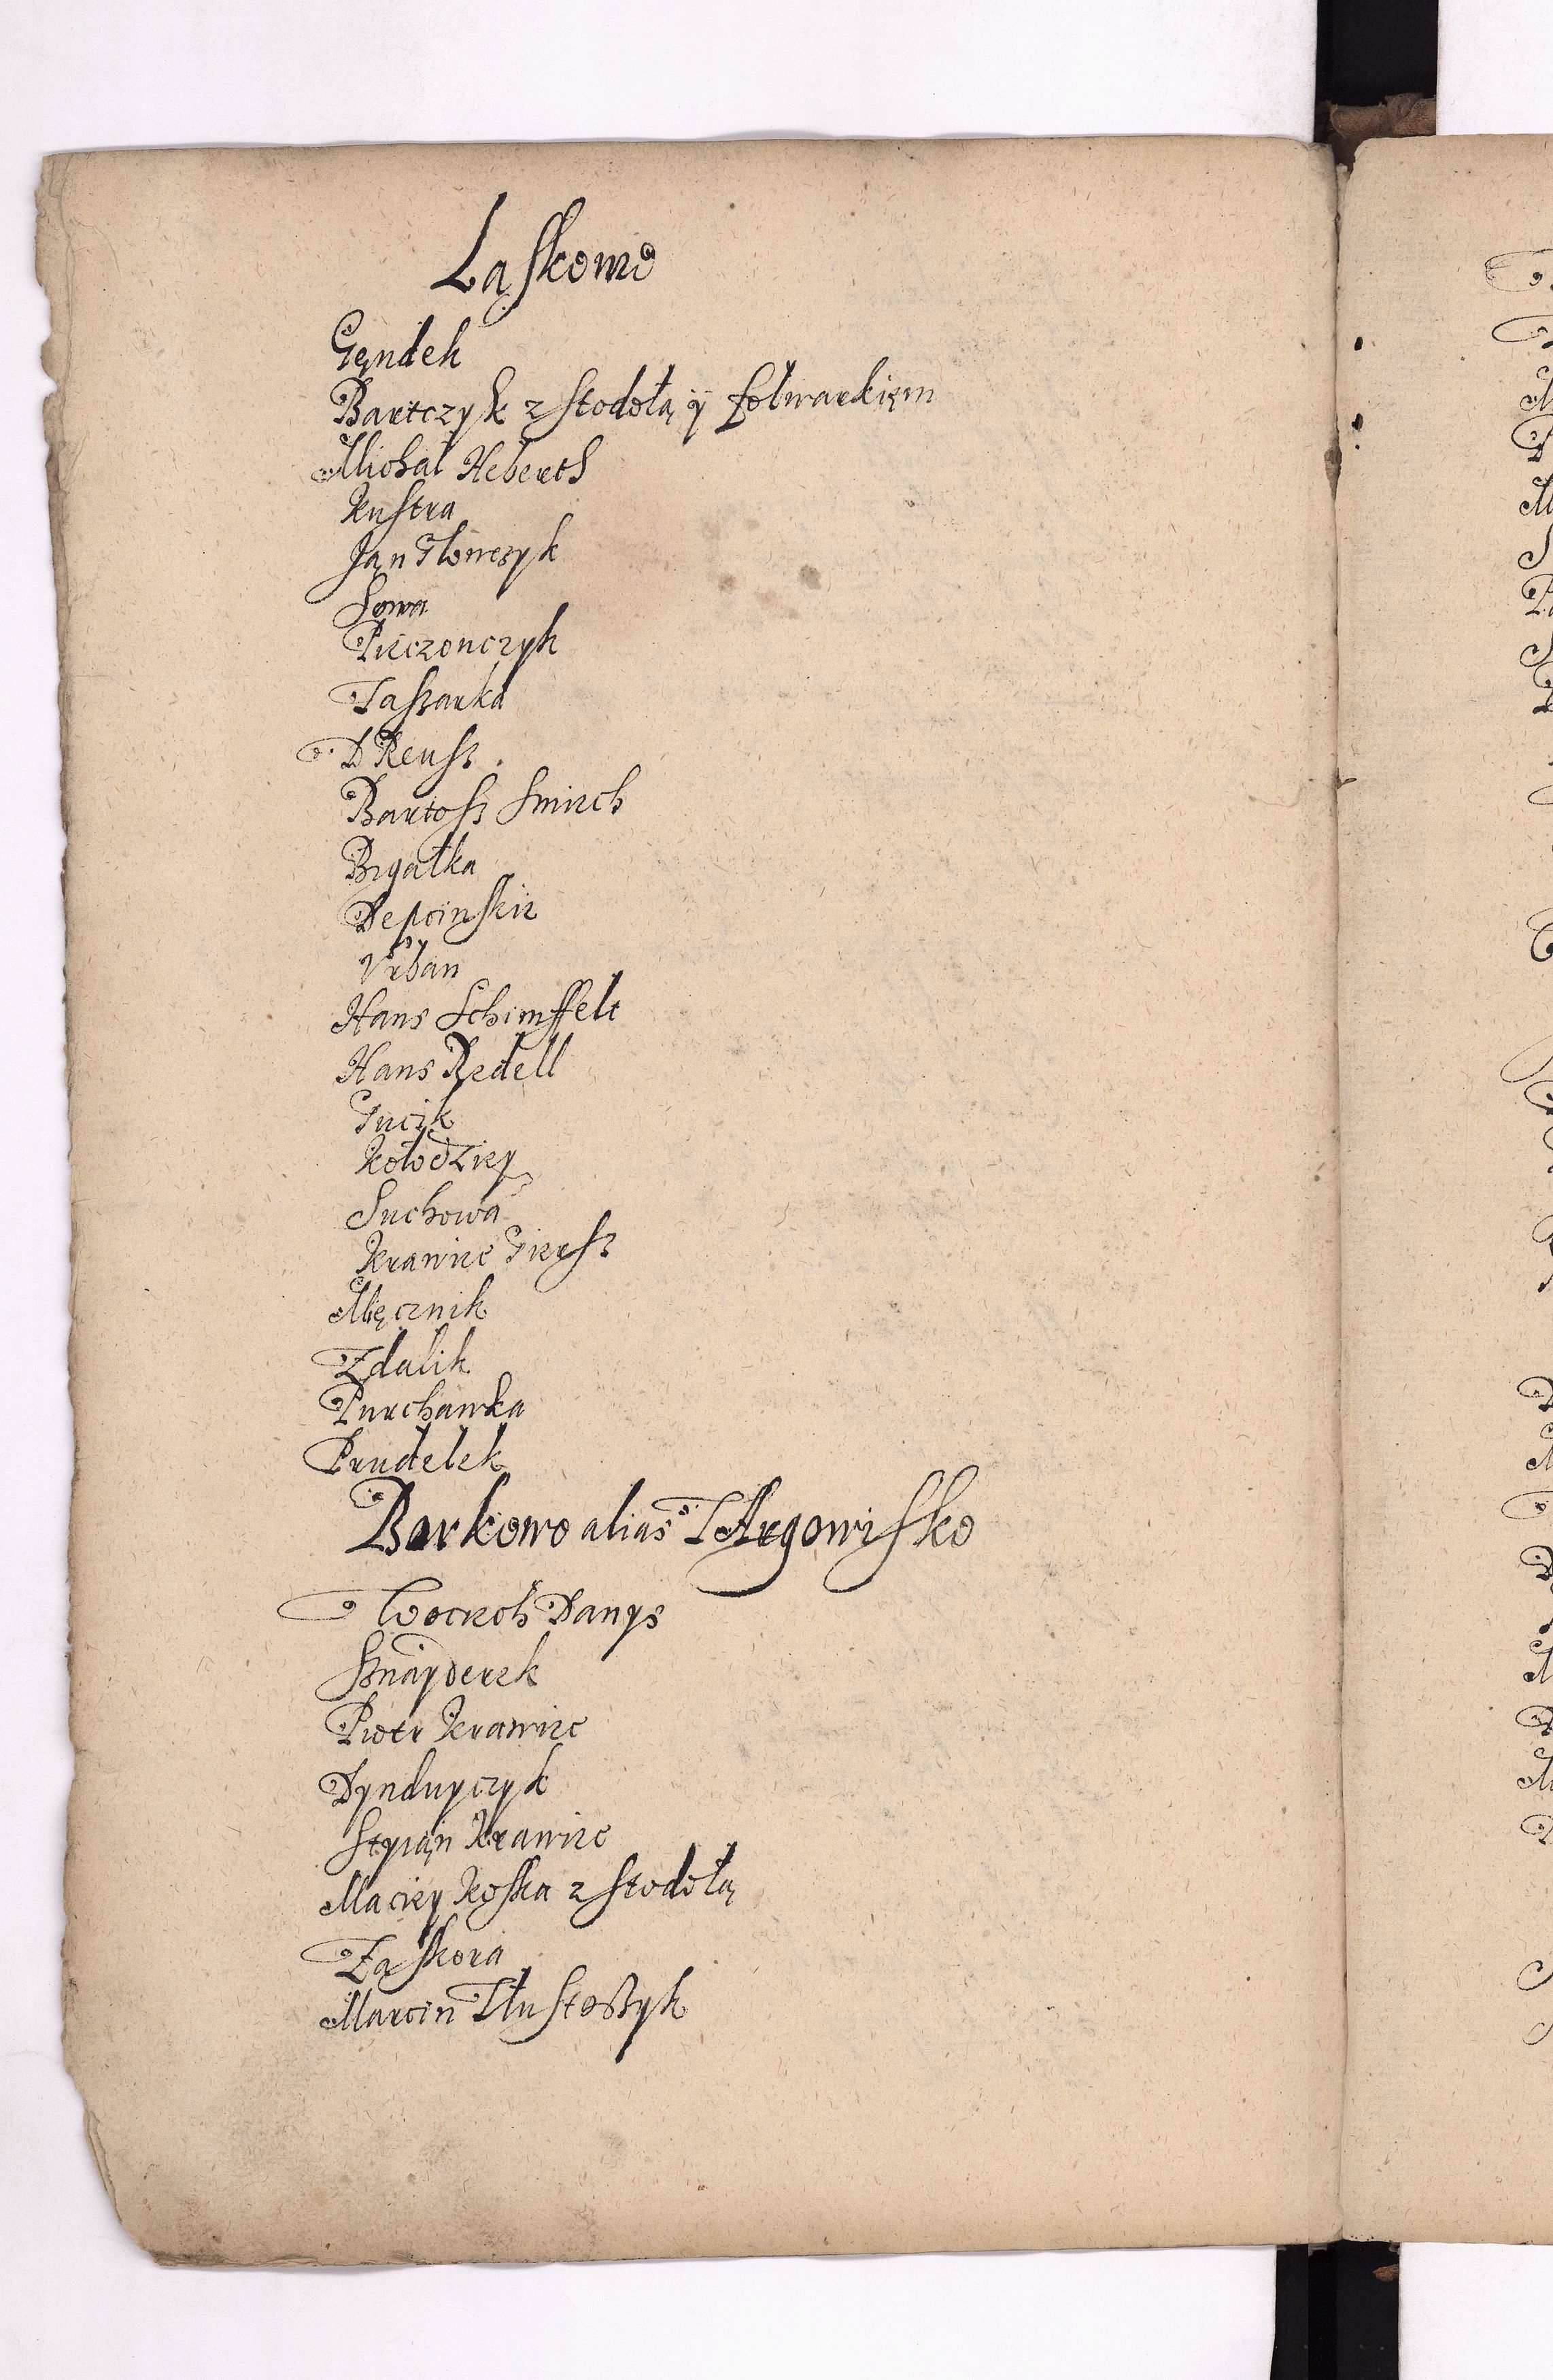 Ląskowo
Gęndek
Bartczyk z stodołą y folwarkięm
Michał Heberth
Kustra
Jąn Głowczyk
Sowa
Pieczonczyk
Taszarka
D Reusz.
Bartosz Smiech
Brgałka
Depcinskie
Vrban
Hans Schimffelt
Hans Redell
Gucik
Kołodziey
Suchowa
Krawiec Giersz
Mięcznik
Zdalik
Purchawka
Prudelek
Borkowo alias TArgowisko
Wociech Danys
Sznayderek
Piotr Krawiec
Dynduyczyk
Styiąn Krawiec
Maciey Koska z stodołą
Ząskora
Marcin Tłustoszyk